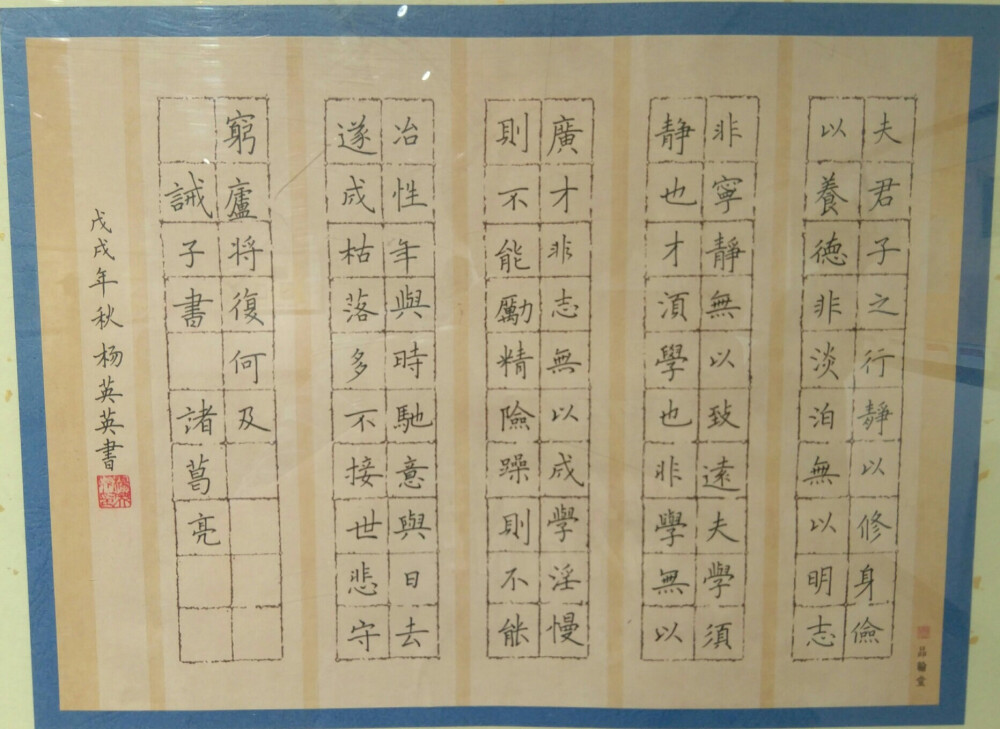 夫君子之行靜以修身儉
以養徳非淡泊無以明志
非寧靜無以致遠夫學須
静也才須學也非學無以
廣才非志無以成學淫慢
則不能勵精險躁則不能
冶性年與時馳意與日去
遂成枯落多不接世悲守
窮廬将復何及
誡子書 諸葛亮
戊戌年秋杨英英書
品翰堂